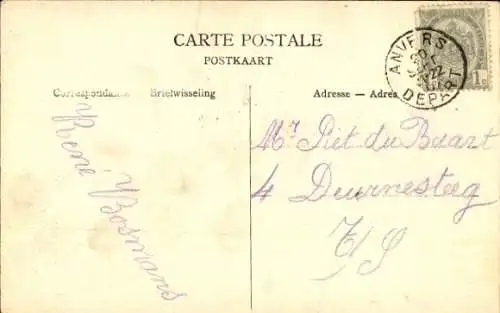 CARTE POSTALE
POSTKAART
Correspondance Briefwisseling
Adresse — Adres
ANVERS
DEPART
1c
René Bosmans
Mr Piet du Baart
4 Deurnesteeg